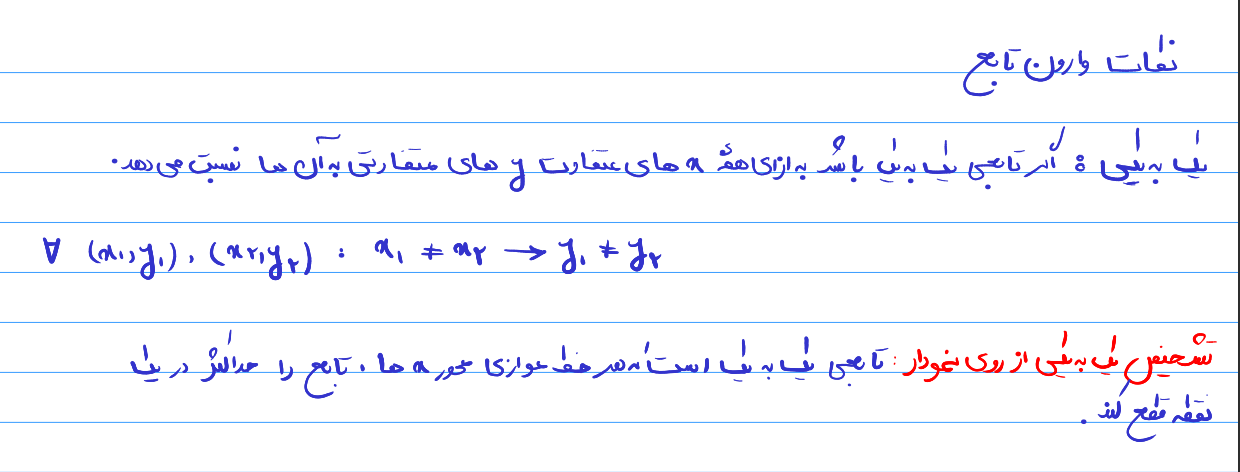 نکات وارون تابع
یک به یکی : اگر تابعی یک به یک باشد به ازای همهٔ x های متفاوت y های متفاوتی به آن ها نسبت می دهد.
∀ (x₁,y₁), (x₂,y₂) : x₁ ≠ x₂ → y₁ ≠ y₂
تشخیص یک به یکی از روی نمودار: تابعی یک به یک است که هر خط موازی محور x ها، تابع را حداکثر در یک
نقطه قطع کند.